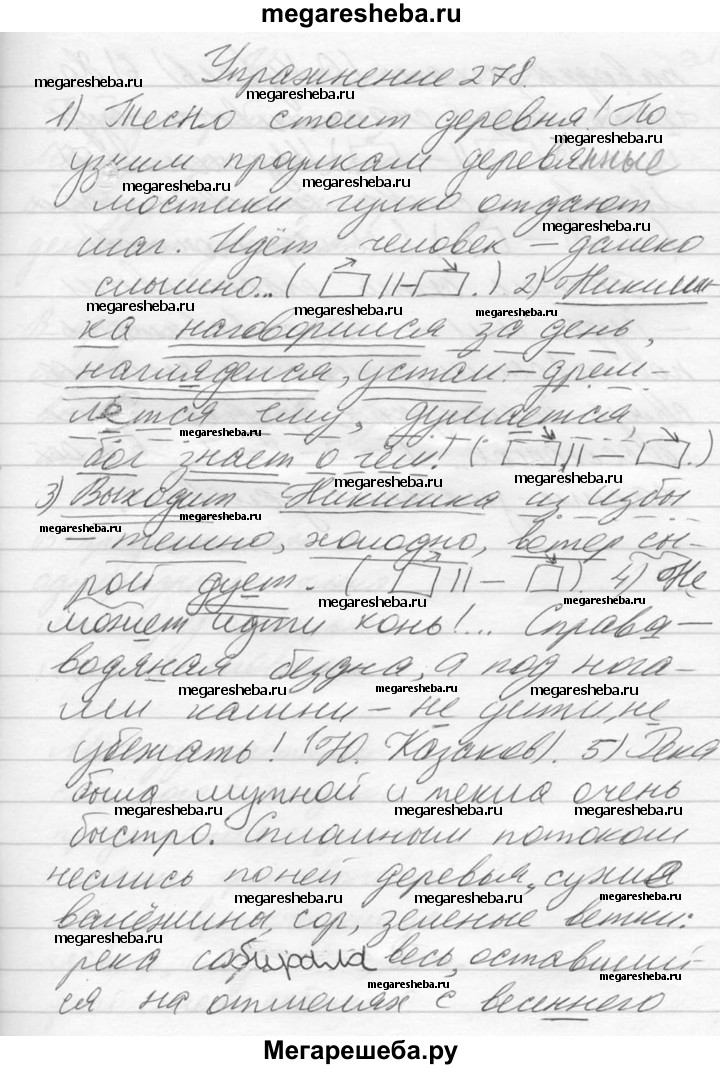 megaresheba.ru
Упражнение 278.
1) Тесно стоит деревня! По
узким проулкам деревянные
мостики гулко отдают
шаг. Идёт человек – далеко
слышно... ( || – .) 2) Никиш-
ка наговорился за день,
нагляделся, устал – дрем-
лется ему, думается
бог знает о чём! ( || – .)
3) Выходит Никишка из избы
– темно, холодно, ветер сы-
рой дует. ( || – ) 4) Не
может идти конь!... Справа –
водяная бездна, а под нога-
ми камни – не уйти, не
убежать! (Ю. Казаков). 5) Река
была мутной и текла очень
быстро. Сплошным потоком
неслись по ней деревья, сухие
валёжины, сор, зеленые ветки:
река собирала весь, оставший-
ся на отмелях с весеннего
Мегарешеба.ру